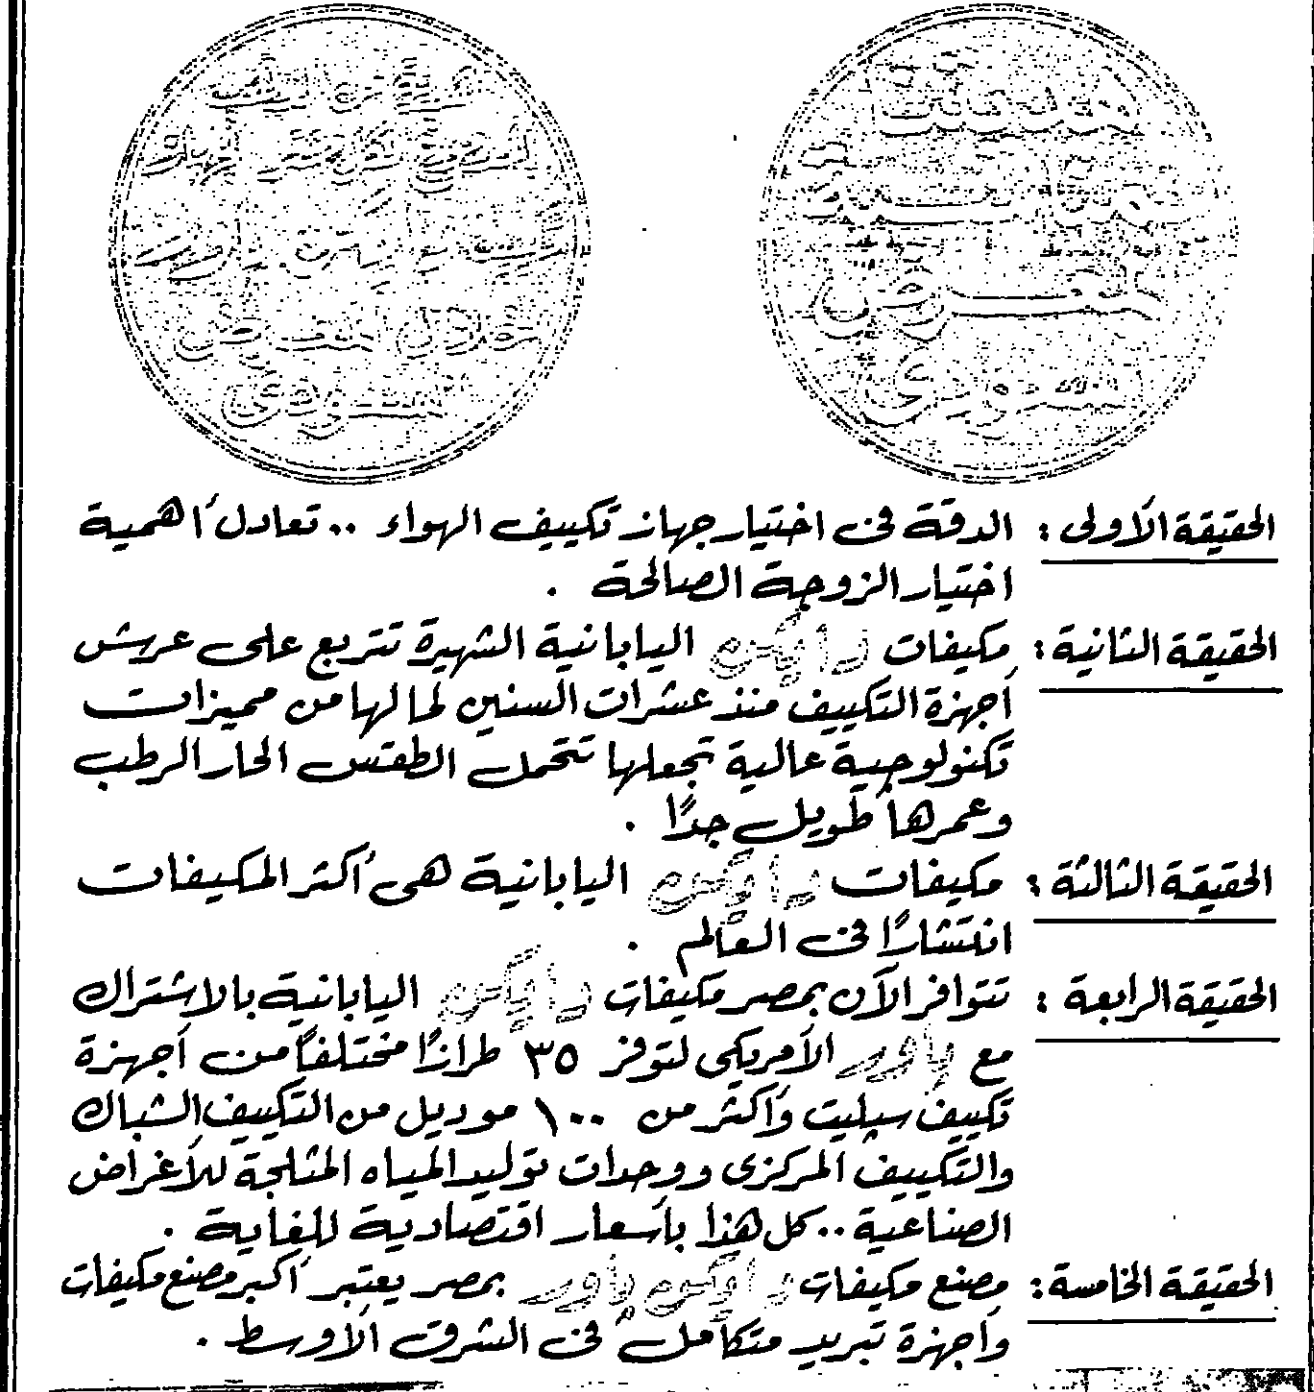 هدية من دايكن
لمن يشترى لكل مشتر لجهاز
تكييف دايكن باور
خلال المعرض
السعودى
المعرض
السعودى
الحقيقة الأولى : الدقة فى اختيار جهاز تكييف الهواء .. تعادل أهمية
اختيار الزوجة الصالحة .
الحقيقة الثانية : مكيفات دايكن اليابانية الشهيرة تتربع على عرش
أجهزة التكييف منذ عشرات السنين لما لها من مميزات
تكنولوجية عالية تجعلها تتحمل الطقس الحار الرطب
وعمرها طويل جدًا .
الحقيقة الثالثة : مكيفات دايكن اليابانية هى أكثر المكيفات
انتشارًا فى العالم .
الحقيقة الرابعة : تتوافر الآن بمصر مكيفات دايكن اليابانية بالاشتراك
مع باور الأمريكى لتوفر ٣٥ طرازًا مختلفًا من أجهزة
تكييف سبليت وأكثر من ١٠٠ موديل من التكييف الشباك
والتكييف المركزى ووحدات توليد المياه المثلجة للأغراض
الصناعية .. كل هذا بأسعار اقتصادية للغاية .
الحقيقة الخامسة : مصنع مكيفات دايكن باور بمصر يعتبر أكبر مصنع مكيفات
وأجهزة تبريد متكامل فى الشرق الأوسط .